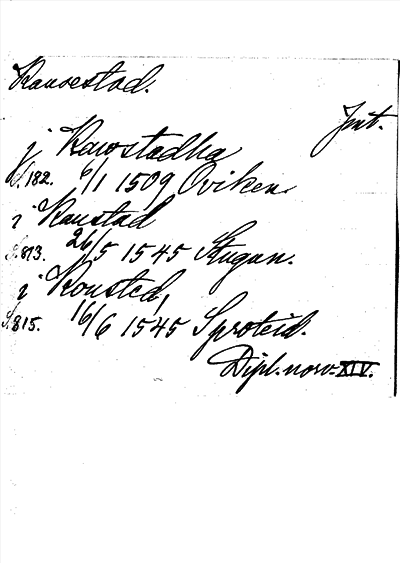 Ravvestad.
Jmt.
j Rawstadha
S. 182. 6/1 1509 Oviken.
i Raustad
S. 813. 26/5 1545 Stugan.
i Rousted,
S. 815. 16/6 1545 Sproteid.
Dipl. norv. XIV.